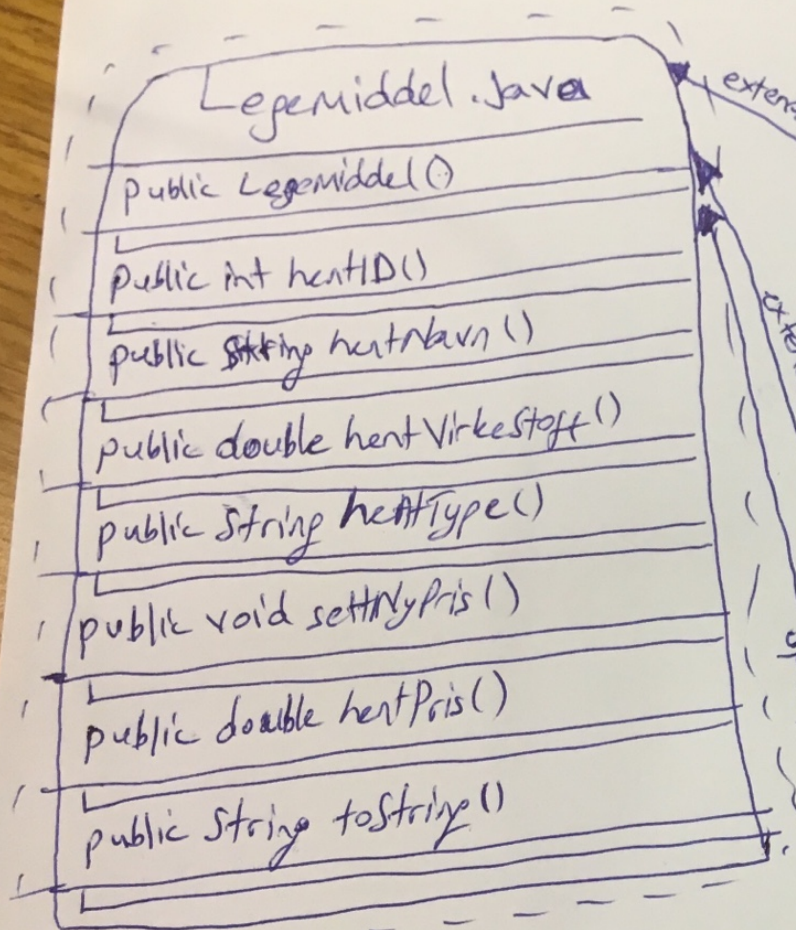 Legemiddel.java
extend
public Legemiddel()
public int hentID()
exte
public String hentNavn()
public double hentVirkestoff()
public String hentType()
public void settNyPris()
public double hentPris()
public String toString()